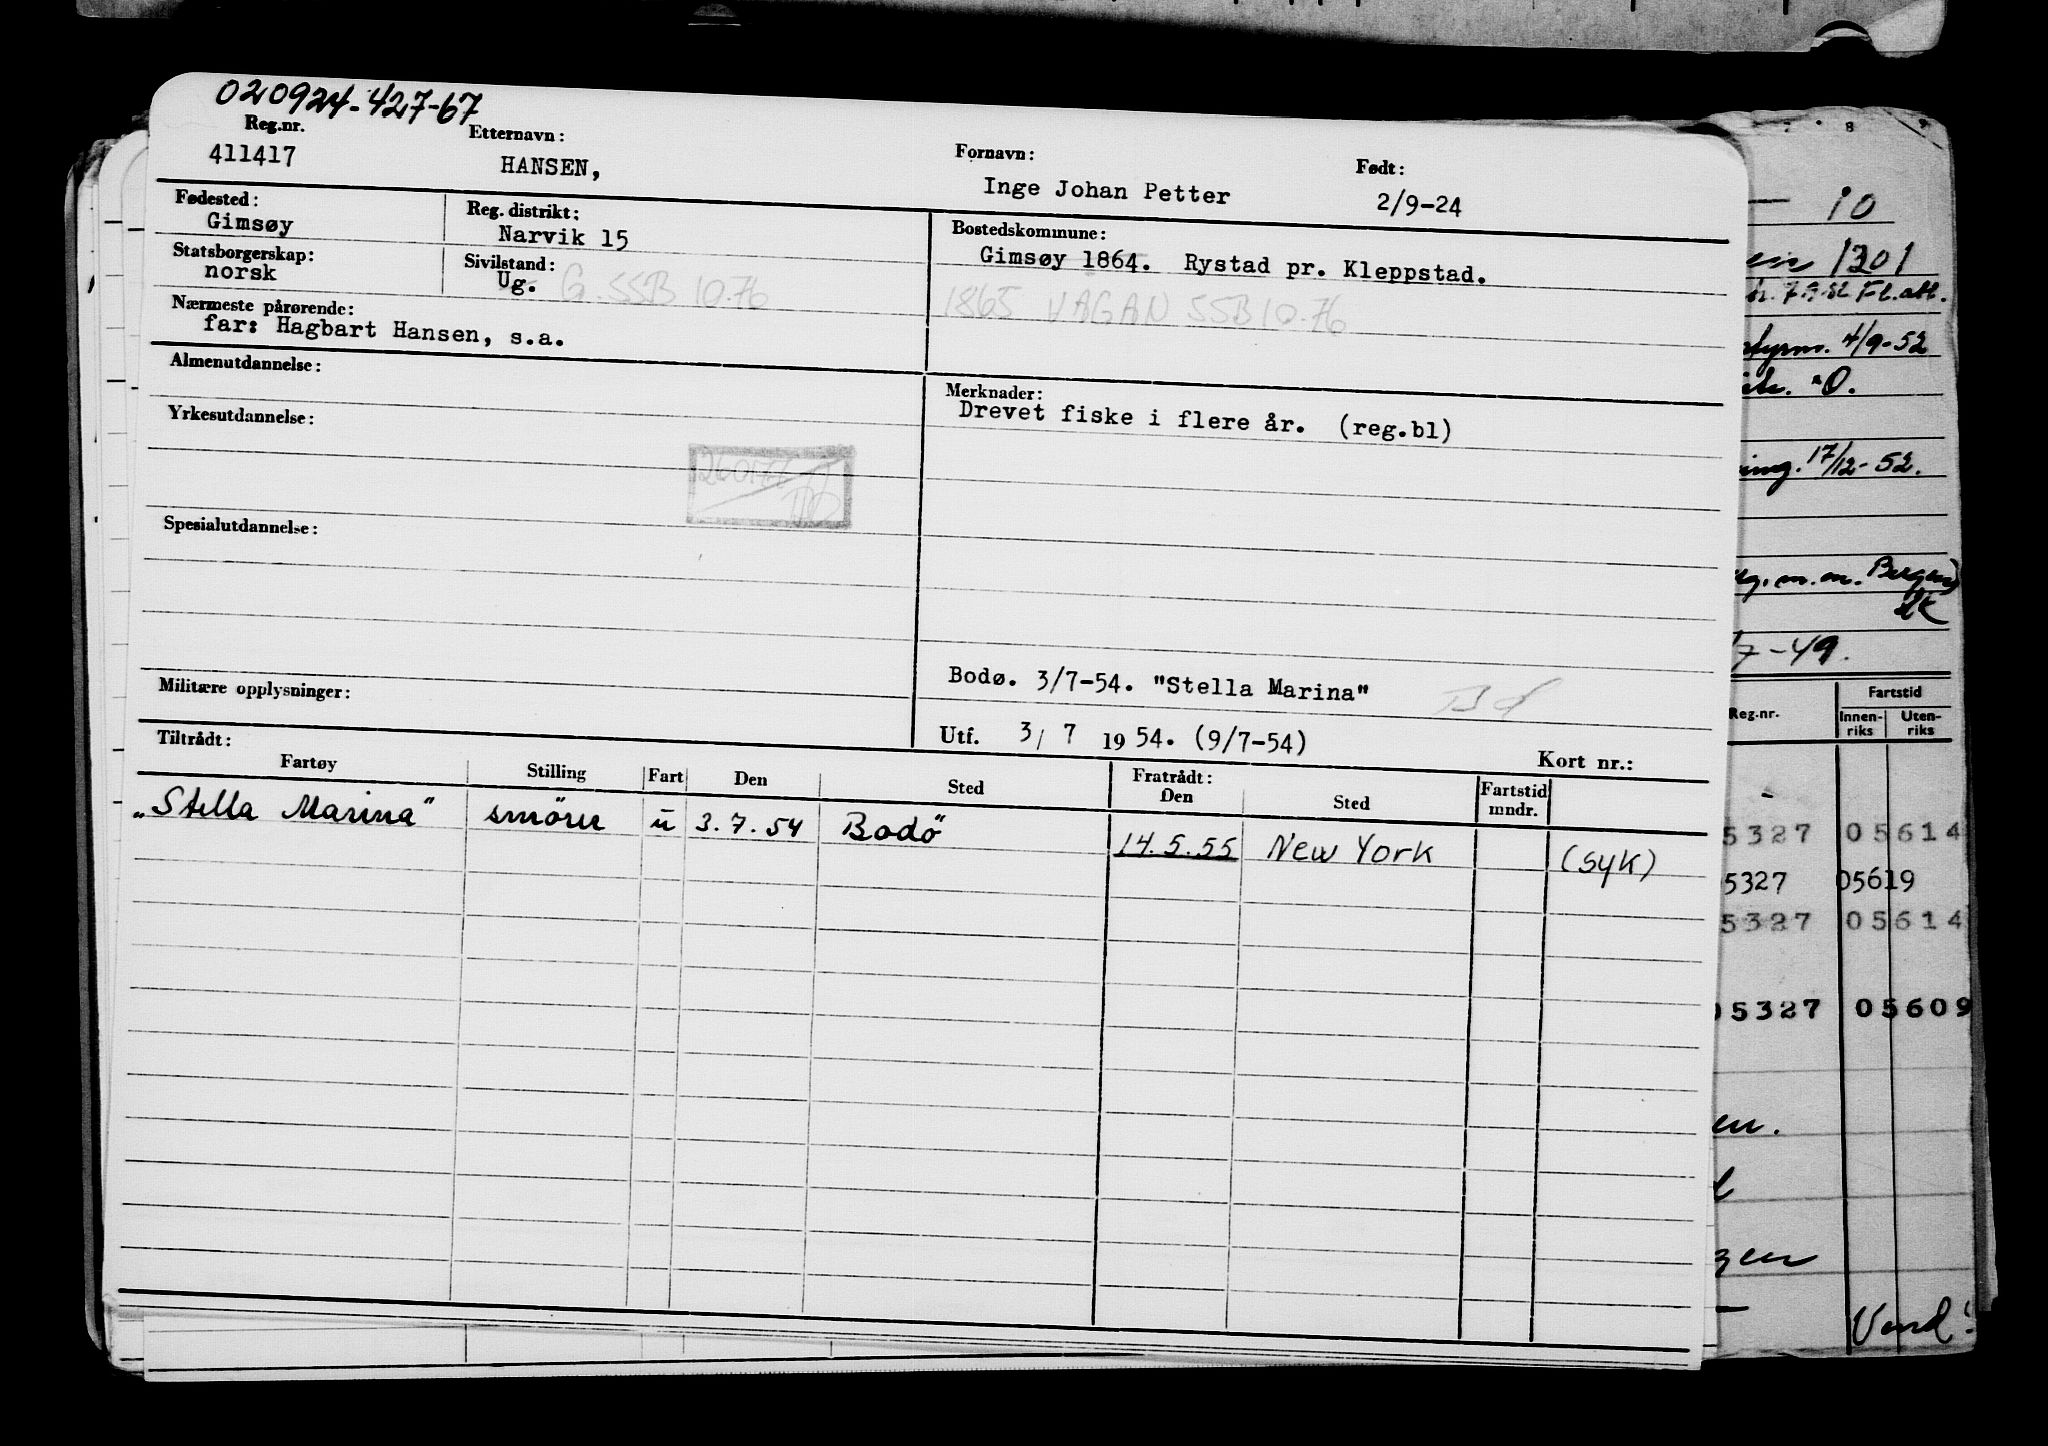 020924-427-67
Reg.nr. Etternavn: Fornavn: Født:
411417 HANSEN, Inge Johan Petter 2/9-24
Fødested: Reg. distrikt: Bostedskommune:
Gimsøy Narvik 15 Gimsøy 1864. Rystad pr. Kleppstad.
Statsborgerskap: Sivilstand:
norsk Ug. G. SSB 10.76 1865 VAGAN SSB 10.76
Nærmeste pårørende:
far: Hagbart Hansen, s.a.
Almenutdannelse: Merknader:
Drevet fiske i flere år. (reg.bl)
Yrkesutdannelse:
Spesialutdannelse:
Bodø. 3/7-54. "Stella Marina"
Militære opplysninger:
Utf. 3/ 7 1954. (9/7-54)
Tiltrådt: Kort nr.:
Fartøy Stilling Fart Den Sted Fratrådt: Den Sted Fartstid mndr.
"Stella Marina" smører u 3.7.54 Bodö 14.5.55 New York (syk)
7 8 9
10
1301
7.9.52 Fl.att.
4/9-52
17/12-52.
m.m. Bergen
7-49.
Reg.nr. Fartstid
Innen-riks Uten-riks
5327 05614
5327 05619
5327 05614
05327 05609
en.
Vend!